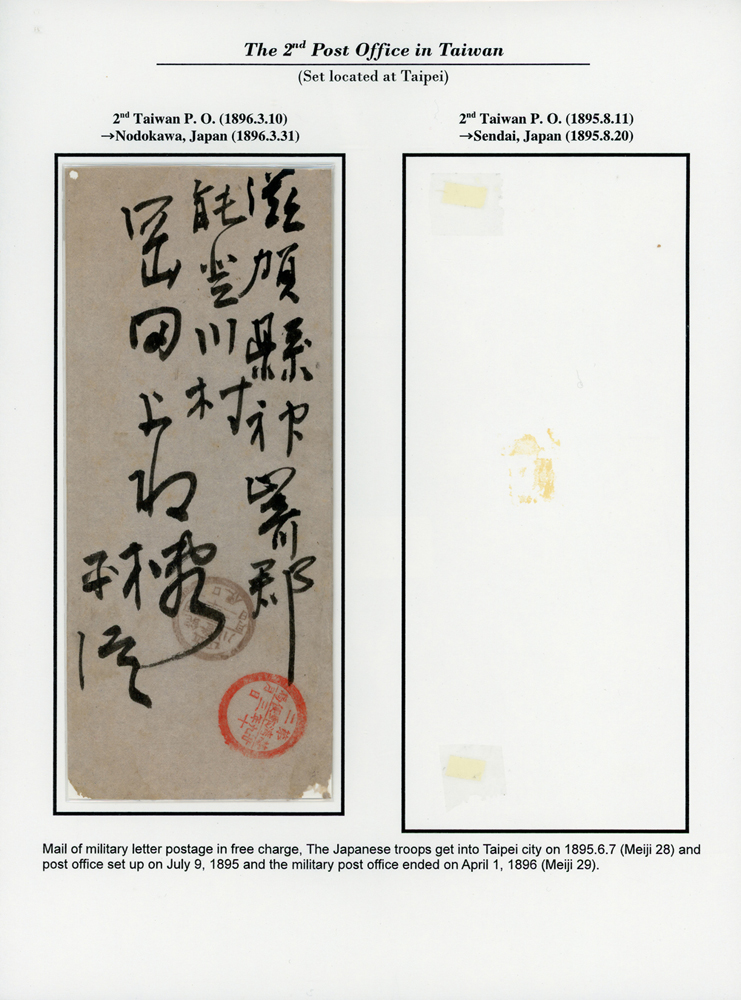 The 2nd Post Office in Taiwan
(Set located at Taipei)
2nd Taiwan P. O. (1896.3.10)
→Nodokawa, Japan (1896.3.31)
2nd Taiwan P. O. (1895.8.11)
→Sendai, Japan (1895.8.20)
滋賀縣神崎郡
能登川村
岡田
Mail of military letter postage in free charge, The Japanese troops get into Taipei city on 1895.6.7 (Meiji 28) and
post office set up on July 9, 1895 and the military post office ended on April 1, 1896 (Meiji 29).